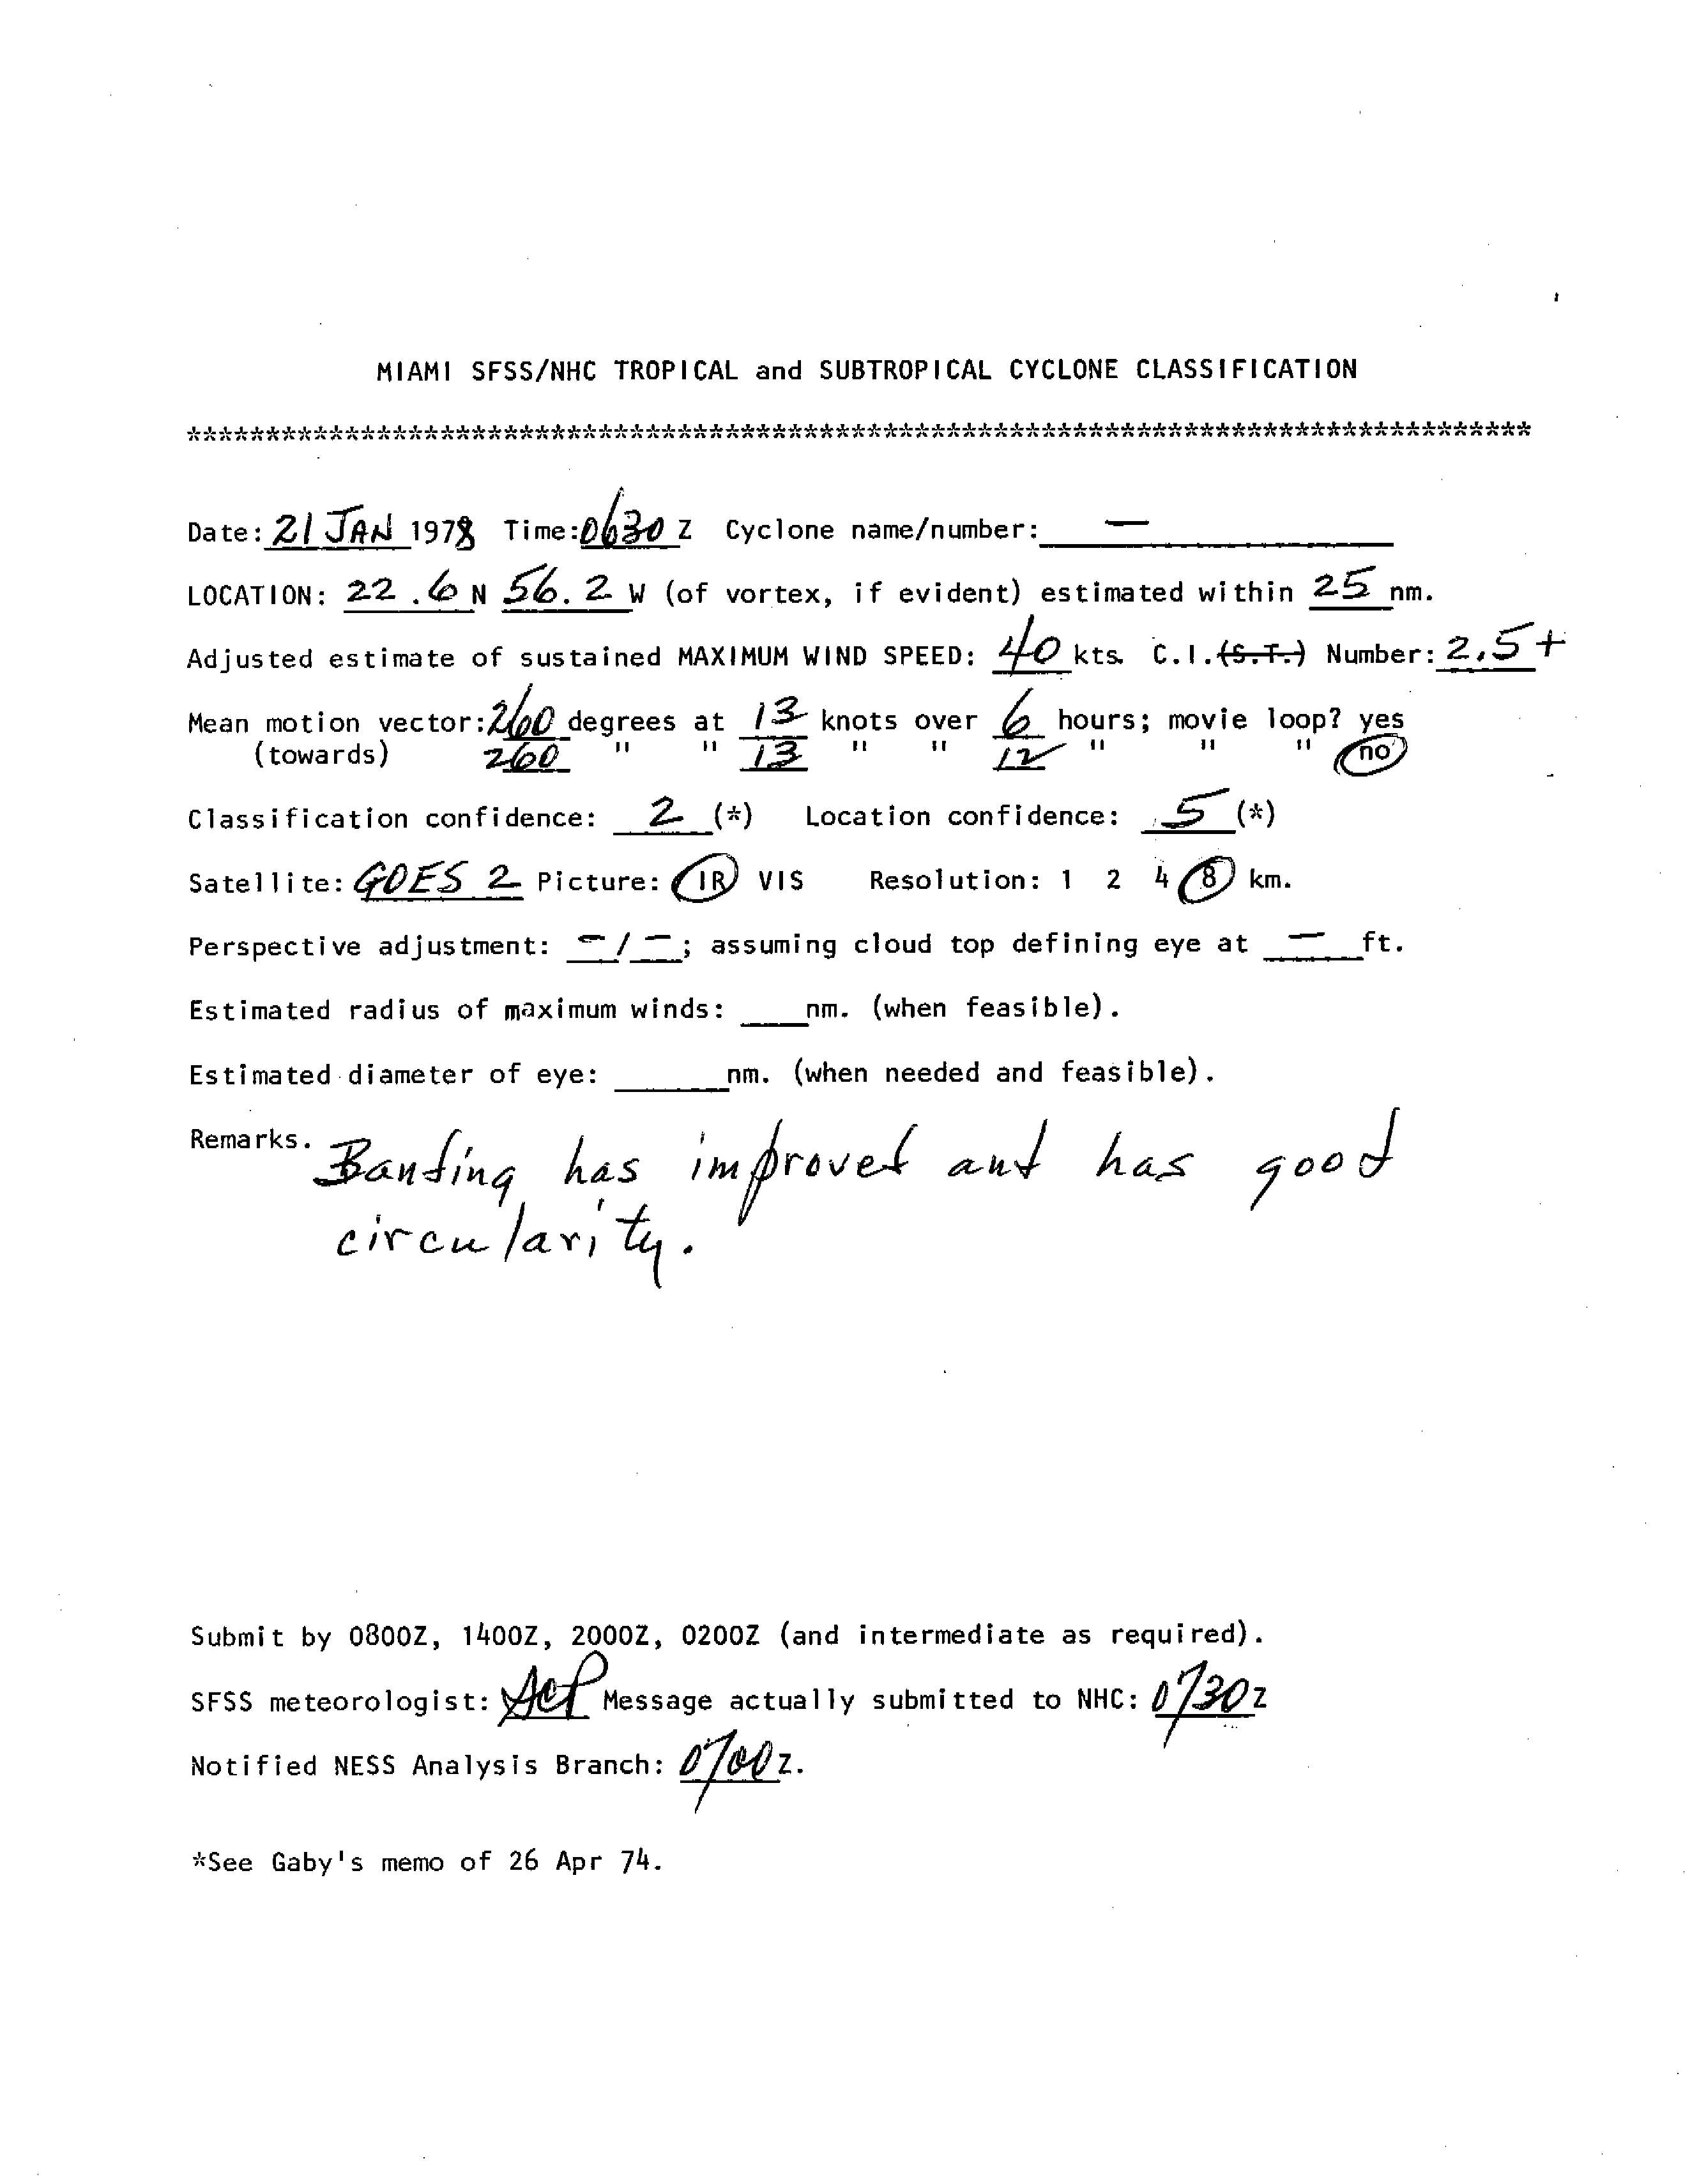 MIAMI SFSS/NHC TROPICAL and SUBTROPICAL CYCLONE CLASSIFICATION
*************************************************************************************
Date: 21 JAN 1978 Time: 0630 Z Cyclone name/number: —
LOCATION: 22.6 N 56.2 W (of vortex, if evident) estimated within 25 nm.
Adjusted estimate of sustained MAXIMUM WIND SPEED: 40 kts. C.I.(S.T.) Number: 2.5+
Mean motion vector: 260 degrees at 13 knots over 6 hours; movie loop? yes
(towards) 260 " " 13 " " 12 " " " no
Classification confidence: 2 (*) Location confidence: 5 (*)
Satellite: GOES 2 Picture: IR VIS Resolution: 1 2 4 8 km.
Perspective adjustment: - / -; assuming cloud top defining eye at — ft.
Estimated radius of maximum winds: ____nm. (when feasible).
Estimated diameter of eye: ______nm. (when needed and feasible).
Remarks. Banding has improved and has good
circularity.
Submit by 0800Z, 1400Z, 2000Z, 0200Z (and intermediate as required).
SFSS meteorologist: Message actually submitted to NHC: 0730Z
Notified NESS Analysis Branch: 0700Z.
*See Gaby's memo of 26 Apr 74.